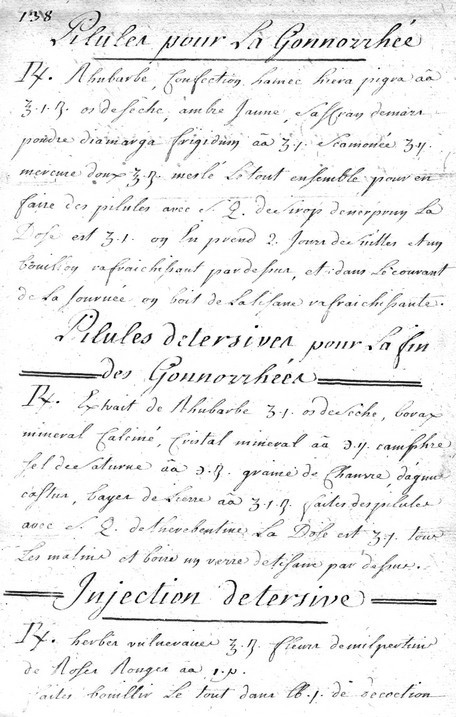 138
Pilules pour La Gonnorrhée
Rx. Rhubarbe Confection hamec hiera pigra āā
ʒ.1.ß. os de sêche, ambre Jaune, Saffran de mars
poudre diamarga frigidum āā ʒ.1. Scamonée ʒ.ij.
mercure doux ʒ.ß. meslé Le tout ensemble pour en
faire des pilules avec S. Q. de Sirop de nerprun La
Dose est ʒ.1. on En prend 2. Jours de suittes et un
boüillon rafraichissant par dessus, et dans Le courant
de La Journée on boit de La tisane rafraichissante.
Pilules detersives pour La fin
des Gonnorrhées
Rx. Extrait de Rhubarbe ʒ.1. os de seche, borax
mineral Calciné, Cristal mineral āā ℈.ij. camphre
Sel de Saturne āā ℈.ß. graine de Chanvre d'agnus
castus, bayes de Lierre āā ʒ.1.ß. faites des pilules
avec S. Q. de therebentine La Dose est ʒ.1. tous
Les matins et boire un verre de tisane par dessus.
Injection detersive
Rx. herbes vulneraires ʒ.ß. fleurs de milpertuis
de Roses Rouges āā 1.p.
faites boüillir Le tout dans lb.1. de decoction